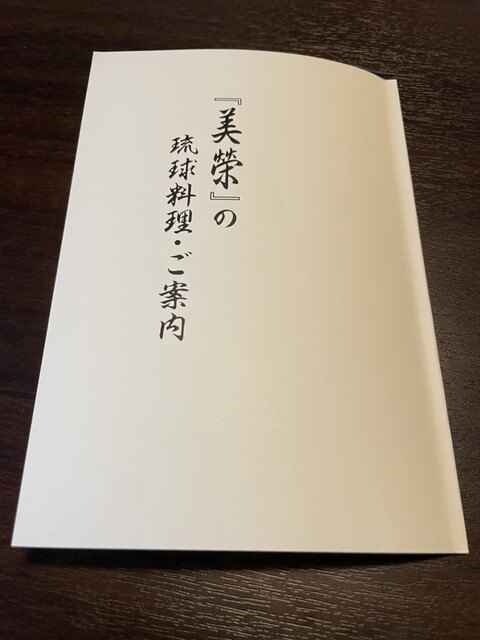 『美榮』の
琉球料理・ご案内